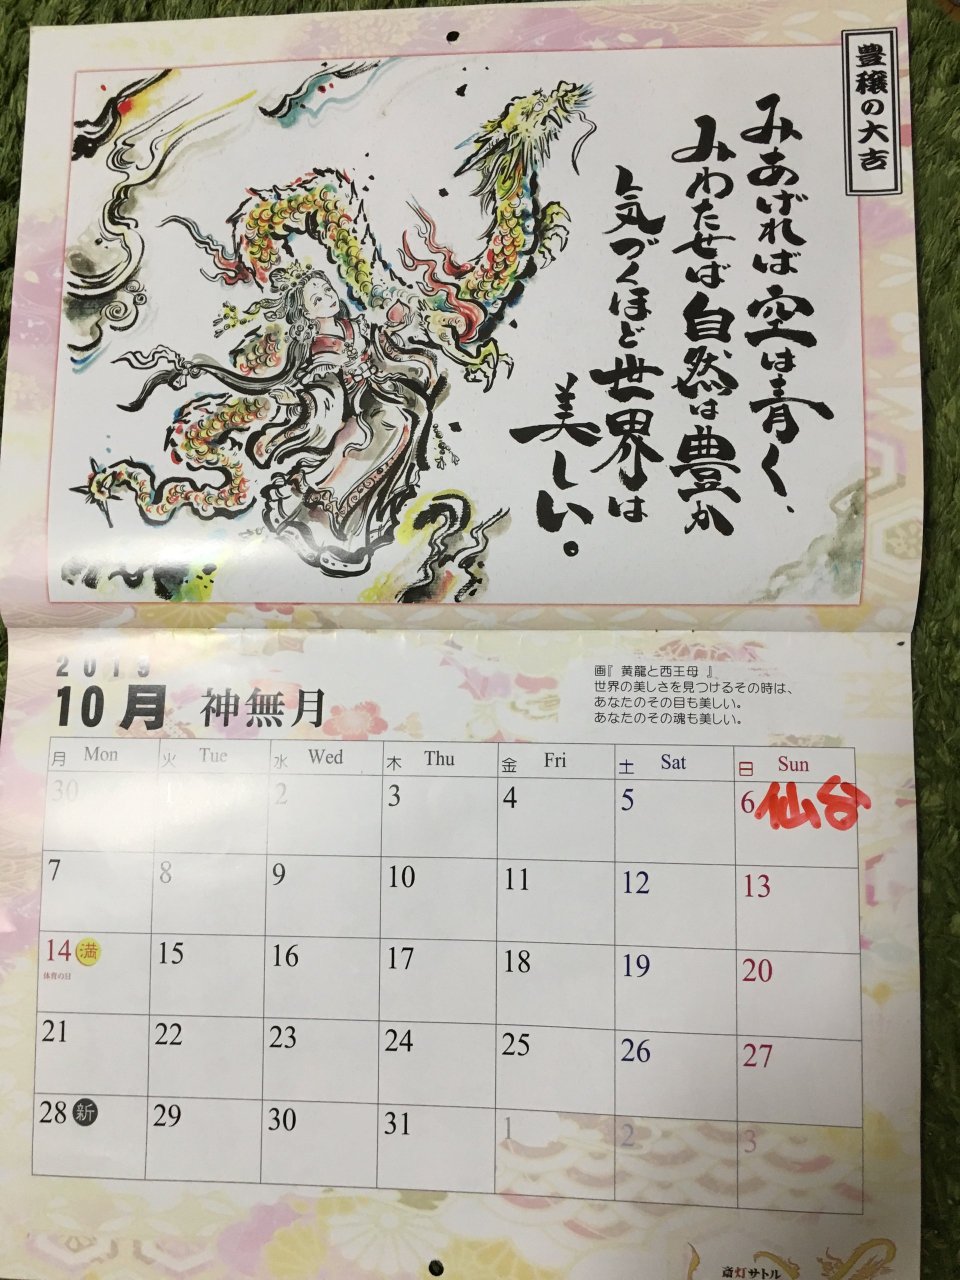 豊穣の大吉
みあげれば空は青く、
みわたせば自然は豊か
気づくほど世界は
美しい。
2019
10月 神無月
画『 黄龍と西王母 』
世界の美しさを見つけるその時は、
あなたのその目も美しい。
あなたのその魂も美しい。
月 Mon 火 Tue 水 Wed 木 Thu 金 Fri 土 Sat 日 Sun
30 1 2 3 4 5 6 仙台
7 8 9 10 11 12 13
14 満 15 16 17 18 19 20
体育の日
21 22 23 24 25 26 27
28 新 29 30 31 1 2 3
斎灯サトル